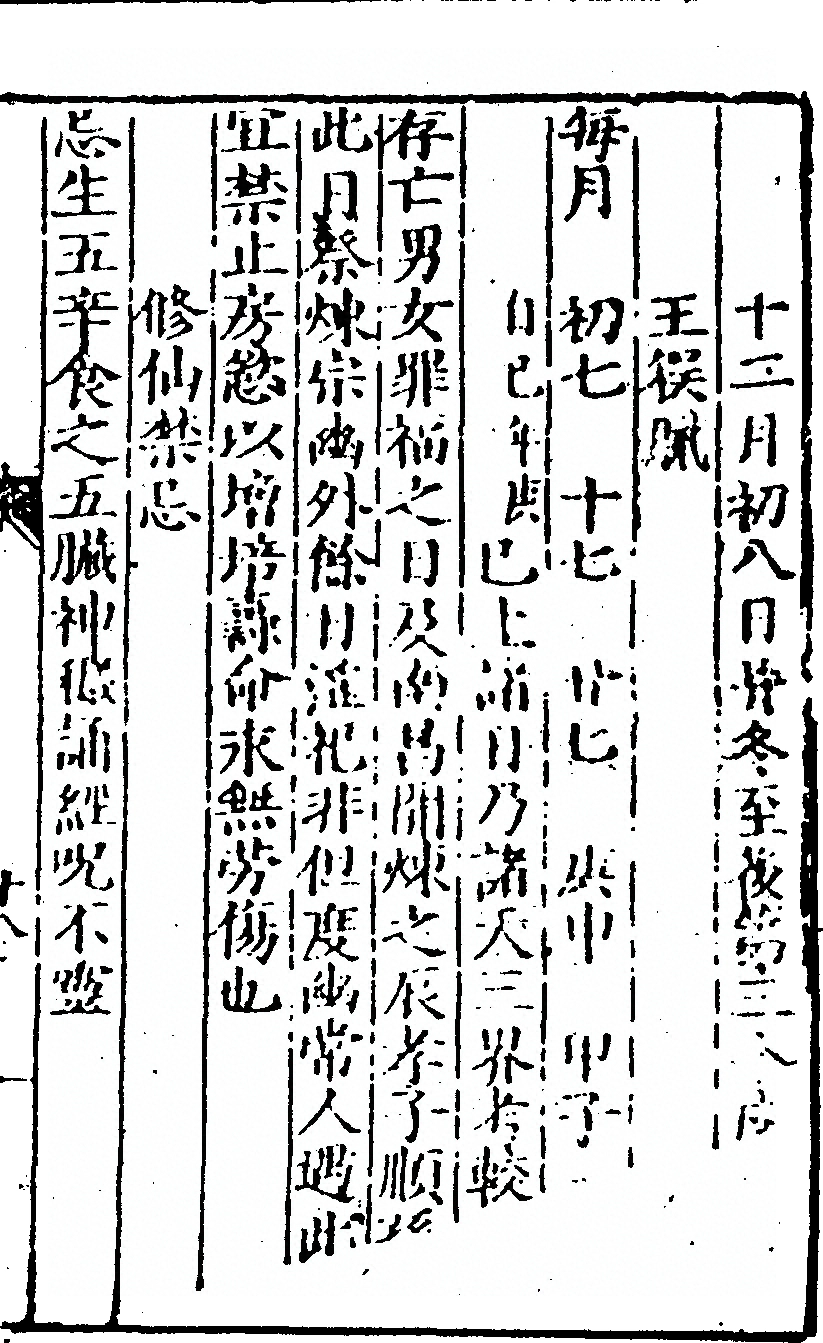 十二月初八日 冬至後第三戌
王侯臘
每月 初七 十七 廿七 庚申 甲子
巳上諸日乃諸天三界考較
存亡男女罪福之日及南昌開煉之辰孝子順
此日祭煉宗幽外餘日淫祀非但度幽常人遇此
宜禁止房慾以增培祿命永無勞傷也
修仙禁忌
忌生五辛食之五臟神 誦經咒不靈
十八